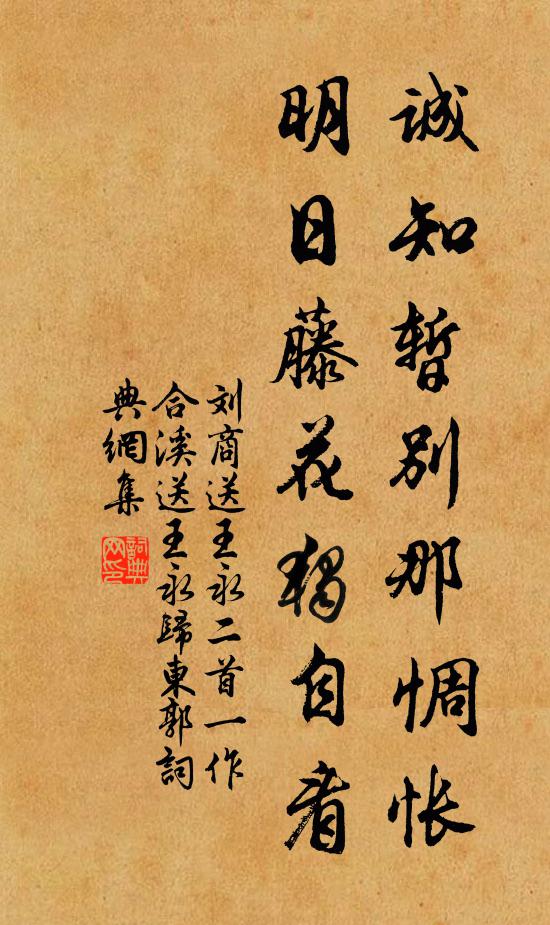 誠知暫别那惆怅
明日藤花獨自看
刘商送王永二首一作
合溪送王永歸東郭詞
典網集
詞典網印